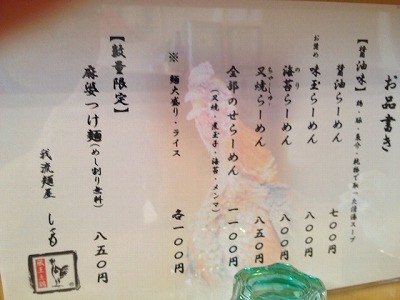 お品書き
【醤油味】鶏・豚・魚介・純鶏で取った清湯スープ
醤油らーめん 七〇〇円
お奨め 味玉らーめん 八〇〇円
海苔らーめん 八〇〇円
のり
叉焼らーめん 八五〇円
ちゃしゅう
全部のせらーめん 一一〇〇円
(叉焼・煮玉子・海苔・メンマ)
※ 麺大盛り・ライス 各一〇〇円
【数量限定】
麻婆つけ麺(めし割り無料) 八五〇円
我流麺屋 しゃも